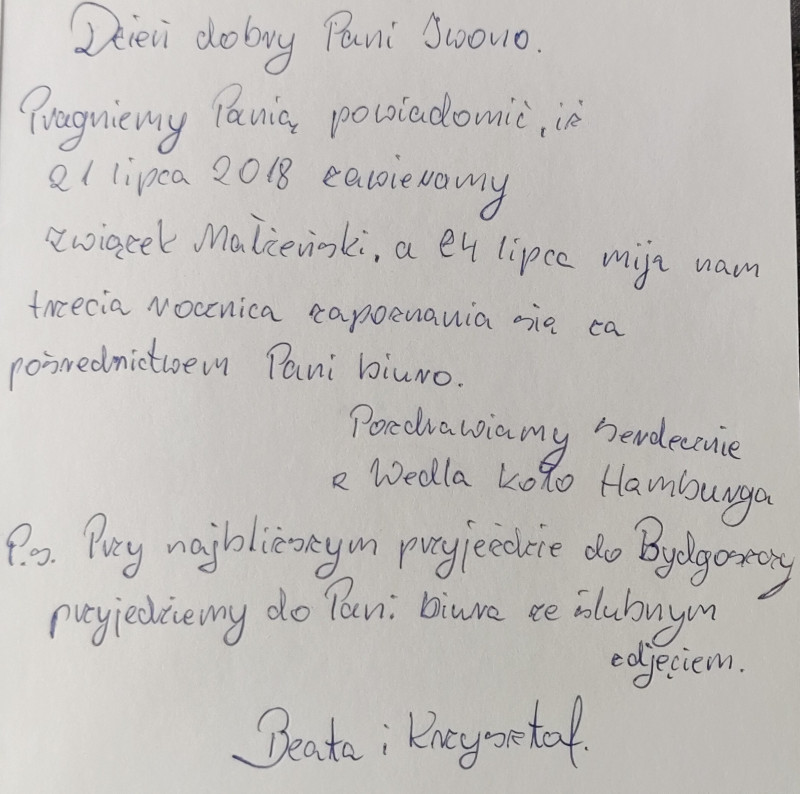 Dzień dobry Pani Iwono.
Pragniemy Panią powiadomić, iż
21 lipca 2018 zawieramy
związek Małżeński, a 24 lipca mija nam
trzecia rocznica zapoznania się za
pośrednictwem Pani biura.
Pozdrawiamy serdecznie
z Wedla koło Hamburga
P.s. Przy najbliższym przyjeździe do Bydgoszczy
przyjedziemy do Pani biura ze ślubnym
zdjęciem.
Beata i Krzysztof.